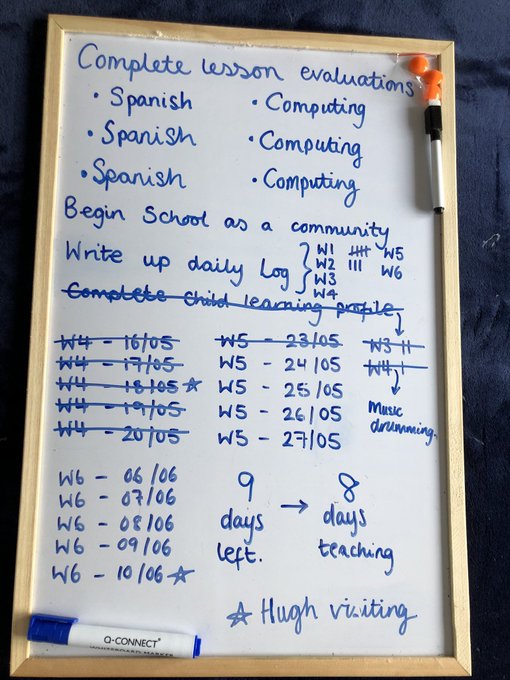 Complete lesson evaluations
• Spanish • Computing
• Spanish • Computing
• Spanish • Computing
Begin School as a community
Write up daily Log
W1
W2
W3
W4
W5
W6
Complete Child learning profile
W4 - 16/05
W4 - 17/05
W4 - 18/05 ☆
W4 - 19/05
W4 - 20/05
W5 - 23/05
W5 - 24/05
W5 - 25/05
W5 - 26/05
W5 - 27/05
W3 II
W4 I
Music
drumming.
W6 - 06/06
W6 - 07/06
W6 - 08/06
W6 - 09/06
W6 - 10/06 ☆
9 → 8
days days
left. teaching
☆ Hugh visiting
Q-CONNECT®
WHITEBOARD MARKER